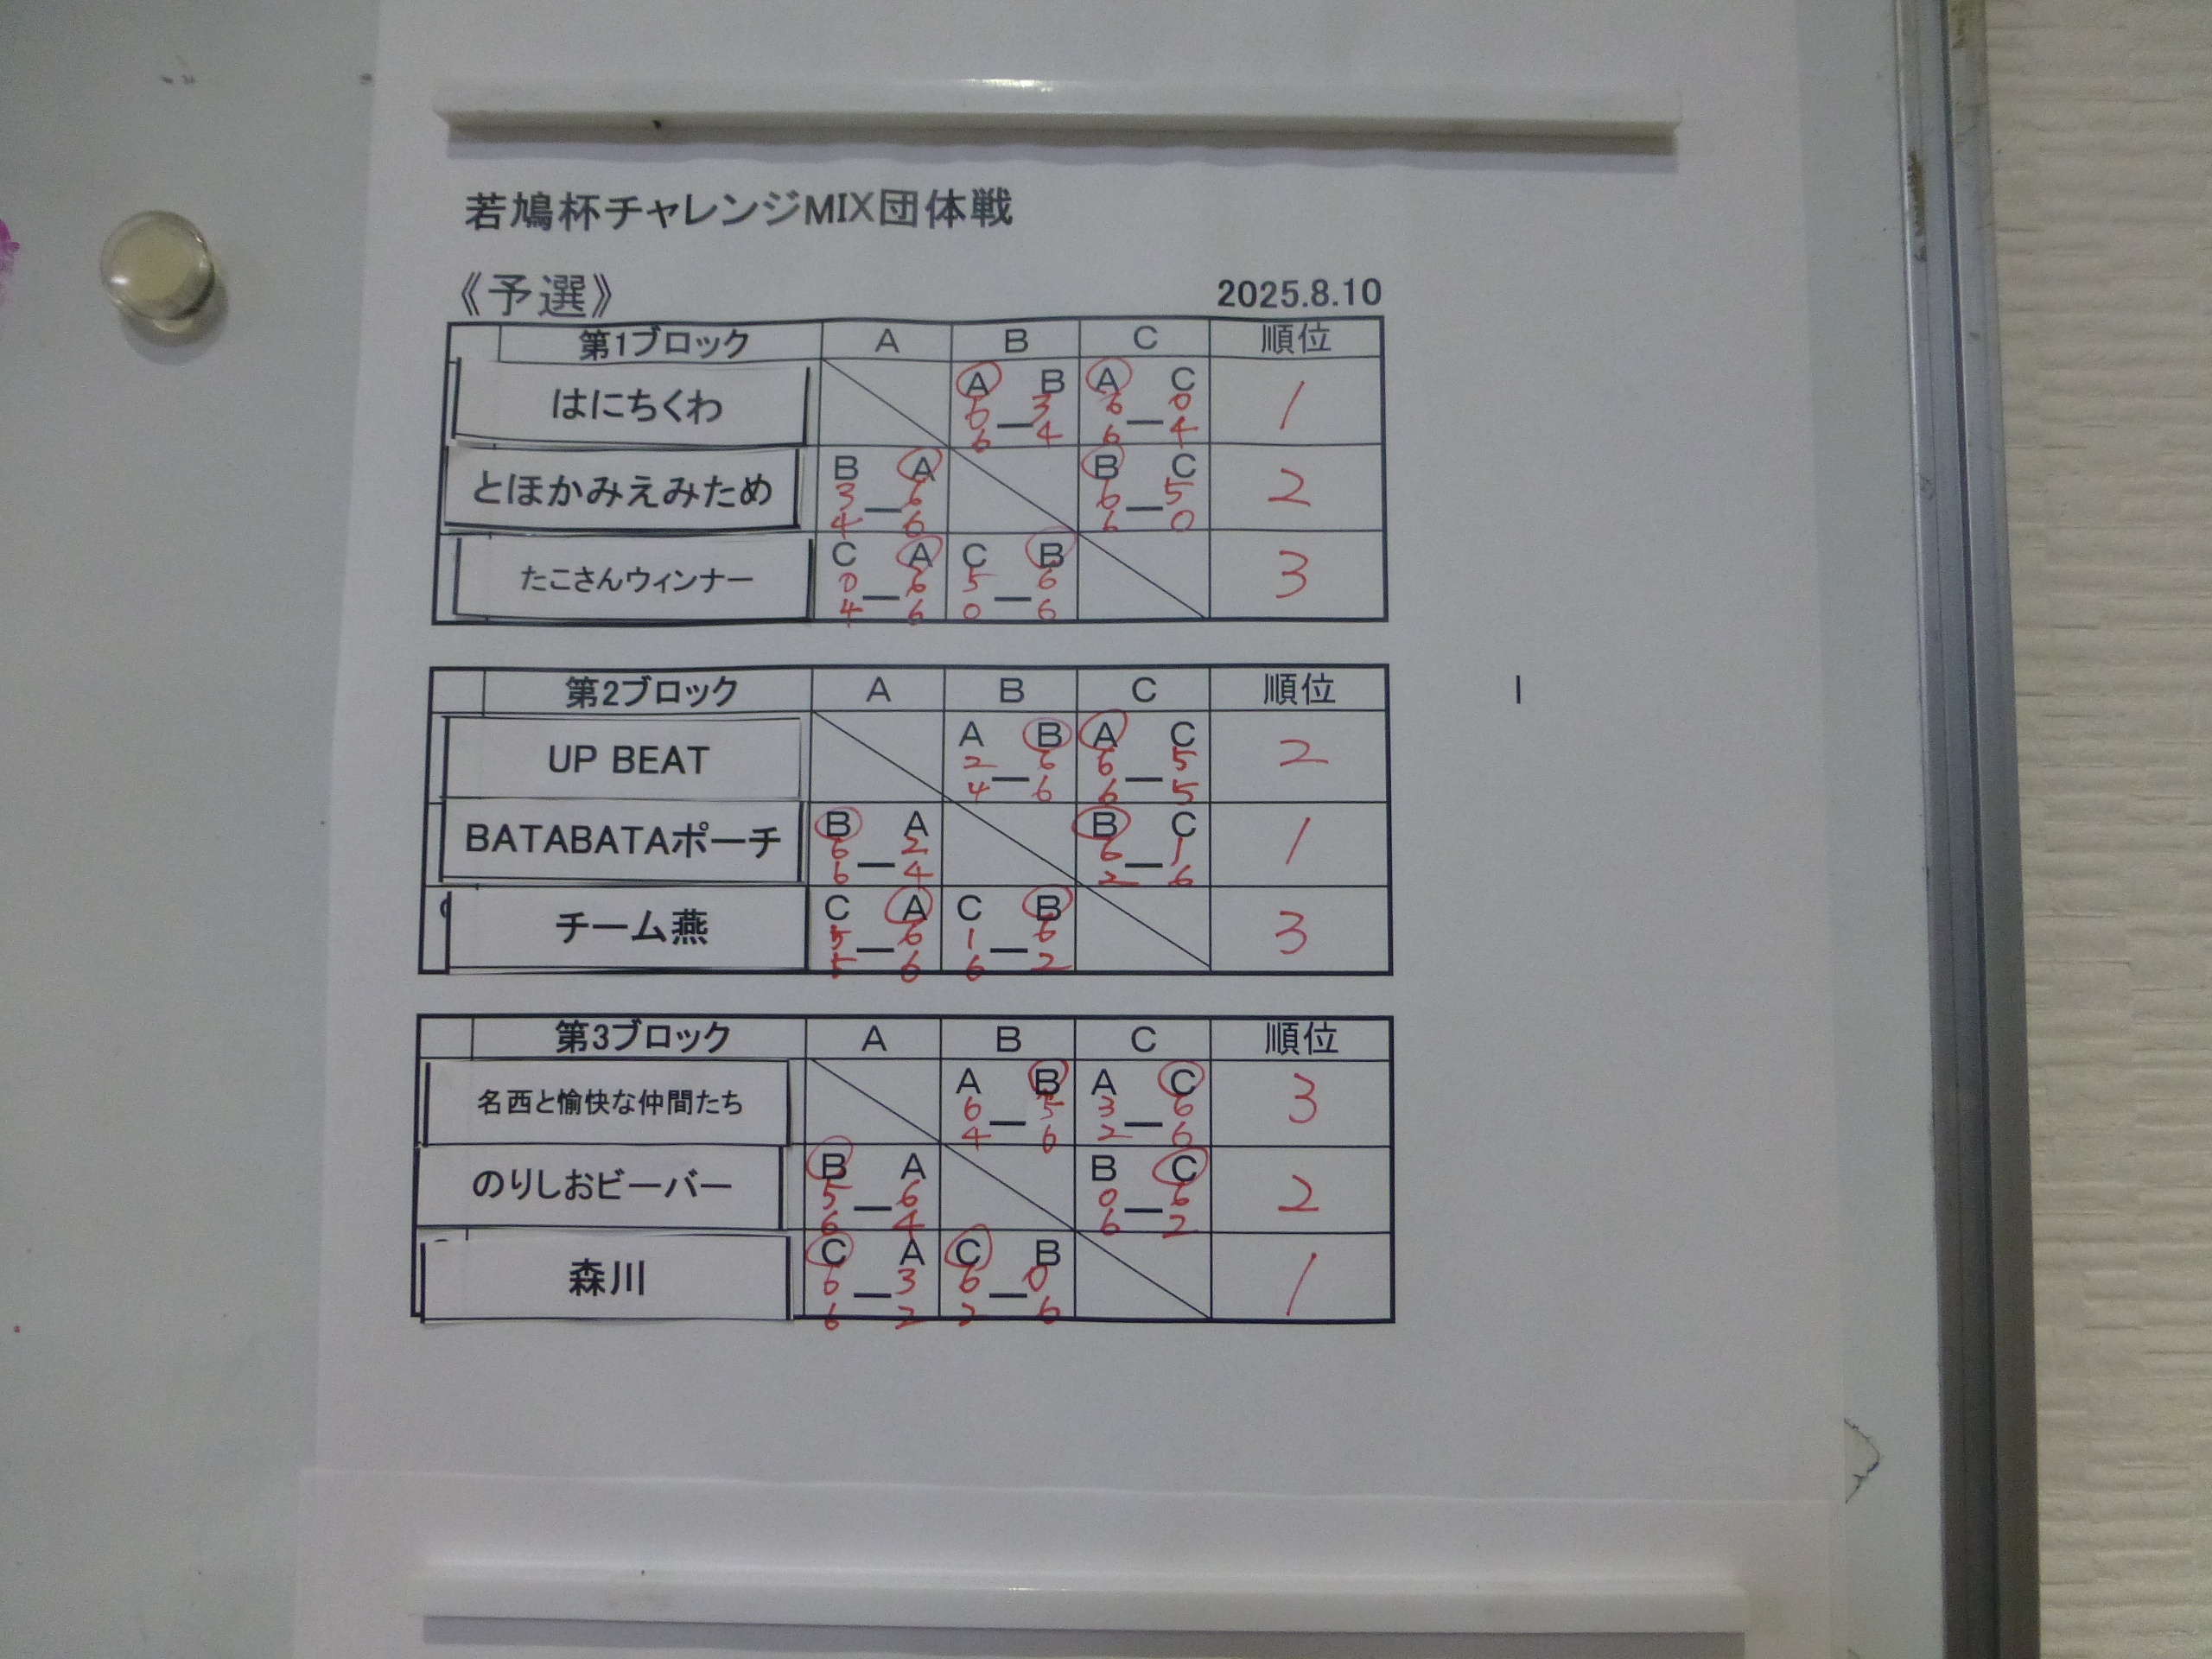 若鳩杯チャレンジMIX団体戦
《予選》 2025.8.10
第1ブロック A B C 順位
はにちくわ A B A C 1
6 3 6 0
6 — 4 6 — 4
とほかみえみため B A B C 2
3 6 6 5
4 — 6 6 — 0
たこさんウィンナー C A C B 3
0 6 5 6
4 — 6 0 — 6
第2ブロック A B C 順位
UP BEAT A B A C 2
2 6 6 5
4 — 6 6 — 5
BATABATAポーチ B A B C 1
6 2 6 1
6 — 4 2 — 6
チーム燕 C A C B 3
5 6 1 6
5 — 6 6 — 2
第3ブロック A B C 順位
名西と愉快な仲間たち A B A C 3
6 5 3 6
4 — 6 2 — 6
のりしおビーバー B A B C 2
5 6 0 6
6 — 4 6 — 2
森川 C A C B 1
6 3 6 0
6 — 2 2 — 6